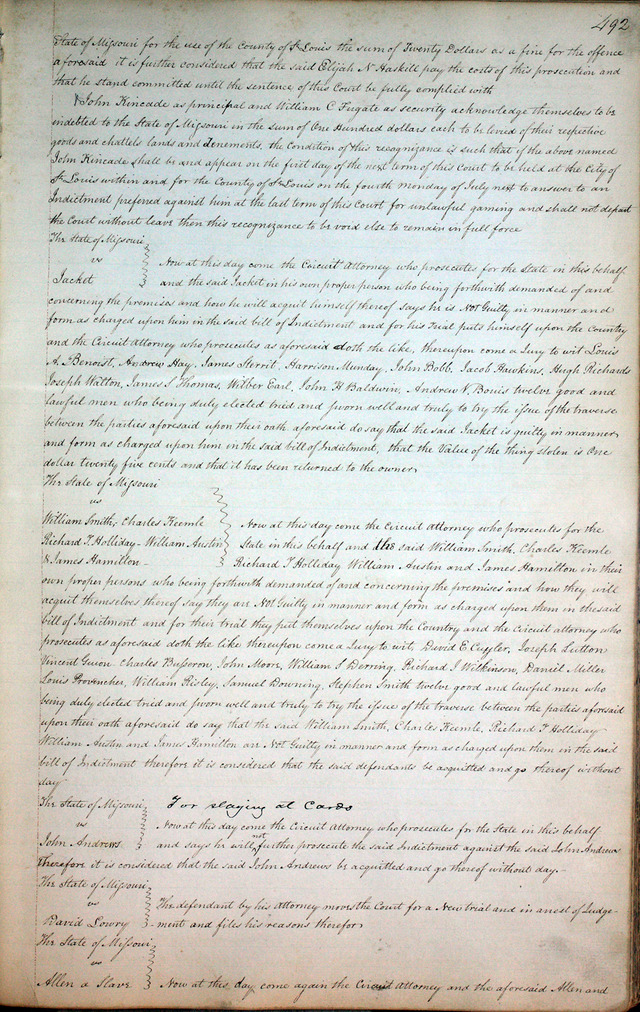 492
State of Missouri for the use of the County of St Louis the sum of Twenty Dollars as a fine for the offence
aforesaid it is further considered that the said Elijah N Haskill pay the costs of this prosecution and
that he stand committed until the sentence of this Court be fully complied with
John Kincade as principal and William C Fugate as security acknowledge themselves to be
indebted to the State of Missouri in the sum of One Hundred dollars each to be levied of their respective
goods and chattels lands and tenements, the condition of this recognizance is such that if the above named
John Kincade shall be and appear on the first day of the next term of this Court to be held at the City of
St Louis within and for the County of St Louis on the fourth monday of July next to answer to an
Indictment preferred against him at the last term of this Court for unlawful gaming and shall not depart
the Court without leave then this recognizance to be void else to remain in full force
The State of Missouri
vs
Jacket
Now at this day come the Circuit Attorney who prosecutes for the State in this behalf
and the said Jacket in his own proper person who being forthwith demanded of and
concerning the premises and how he will acquit himself thereof says he is Not Guilty in manner and
form as charged upon him in the said bill of Indictment and for his Trial puts himself upon the Country
and the Circuit Attorney who prosecutes as aforesaid doth the like, thereupon come a Jury to wit Louis
A. Benoist, Andrew Hay, James Sterrit, Harrison Munday, John Bobb, Jacob Hawkins, Hugh Richards
Joseph Walton, James S Thomas, Wilber Earl, John H Baldwin, Andrew N. Bouis twelve good and
lawful men who being duly elected tried and sworn well and truly to try the issue of the traverse
between the parties aforesaid upon their oath aforesaid do say that the said Jacket is guilty in manner
and form as charged upon him in the said bill of Indictment, that the Value of the thing stolen is One
dollar twenty five cents and that it has been returned to the owner
The State of Missouri
vs
William Smith, Charles Keemle
Richard T. Holliday - William Austin
& James Hamilton -
Now at this day come the Circuit Attorney who prosecutes for the
State in this behalf and the said William Smith, Charles Keemle
Richard T Holliday William Austin and James Hamilton in their
own proper persons who being forthwith demanded of and concerning the premises and how they will
acquit themselves thereof say they are Not Guilty in manner and form as charged upon them in the said
bill of Indictment and for their trial they put themselves upon the Country and the Circuit attorney who
prosecutes as aforesaid doth the like thereupon come a Jury to wit, David E Cuyler, Joseph Sutton
Vincent Guion Charles Busseron, John Moore, William S Derring, Richard J Wilkinson, Daniel Miller
Louis Provencher, William Risley, Samuel Downing, Stephen Smith twelve good and lawful men who
being duly elected tried and sworn well and truly to try the issue of the traverse between the parties aforesaid
upon their oath aforesaid do say that the said William Smith, Charles Keemle, Richard T Holliday
William Austin and James Hamilton are Not Guilty in manner and form as charged upon them in the said
bill of Indictment therefore it is considered that the said defendants be acquitted and go thereof without
day
The State of Missouri
vs
John Andrews
For playing at Cards
Now at this day come the Circuit Attorney who prosecutes for the State in this behalf
and says he will not further prosecute the said Indictment against the said John Andrews
Therefore it is considered that the said John Andrews be acquitted and go thereof without day. -
The State of Missouri
vs
David Lowry
The defendant by his Attorney moves the Court for a New trial and in arrest of Judge-
ment and files his reasons therefor
The State of Missouri
vs
Allen a Slave
Now at this day come again the Circuit Attorney and the aforesaid Allen and